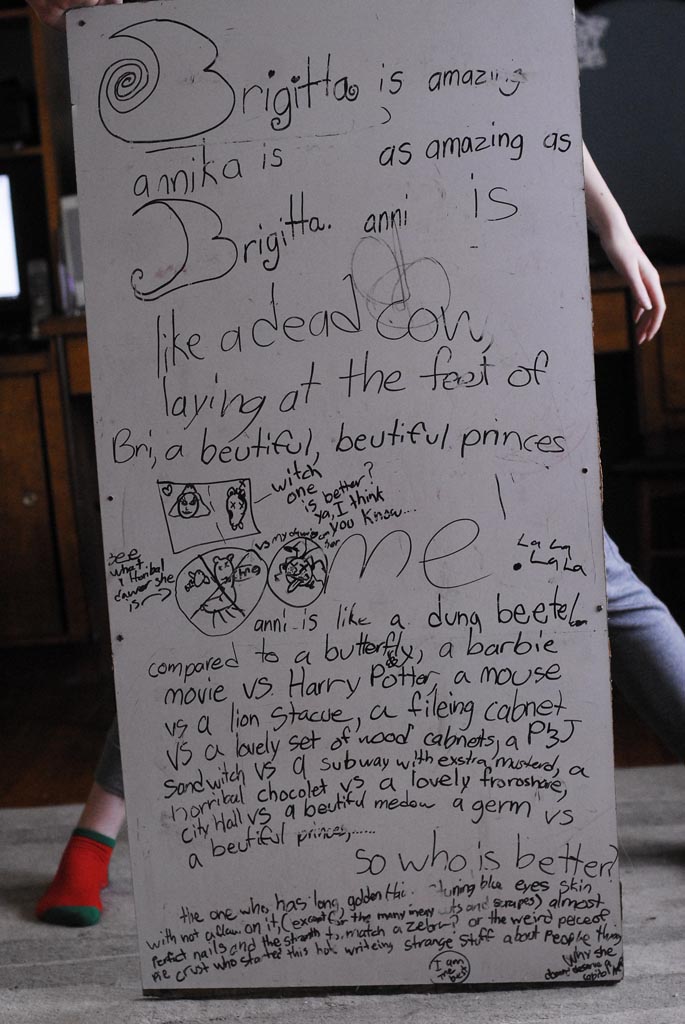 Brigitta is amazing
annika is as amazing as
Brigitta. anni is
like a dead cow,
laying at the feet of
Bri, a beutiful, beutiful princes
witch
one
is better?
ya, I think
you know...
see
what
I
she
is
vs my
me
La La
La La
anni is like a dung beetel
compared to a butterfly, a barbie
movie vs. Harry Potter, a mouse
vs a lion Stacue, a fileing cabnet
vs a lovely set of wood cabnets, a P&J
sandwitch vs a subway with exstra musterd, a
horribal chocolet vs a lovely froroshare,
city Hall vs a beutiful medow a germ vs
a beutiful princes,......
So who is better?
the one who, has long, golden blue eyes skin
with not a flaw on it, (except for the many and scrapes) almost
perfect nails and the stranth to match a zebra? or the weird peece of
pie crust who started this hole writeing strange stuff about people thing
I am
the best
Why she